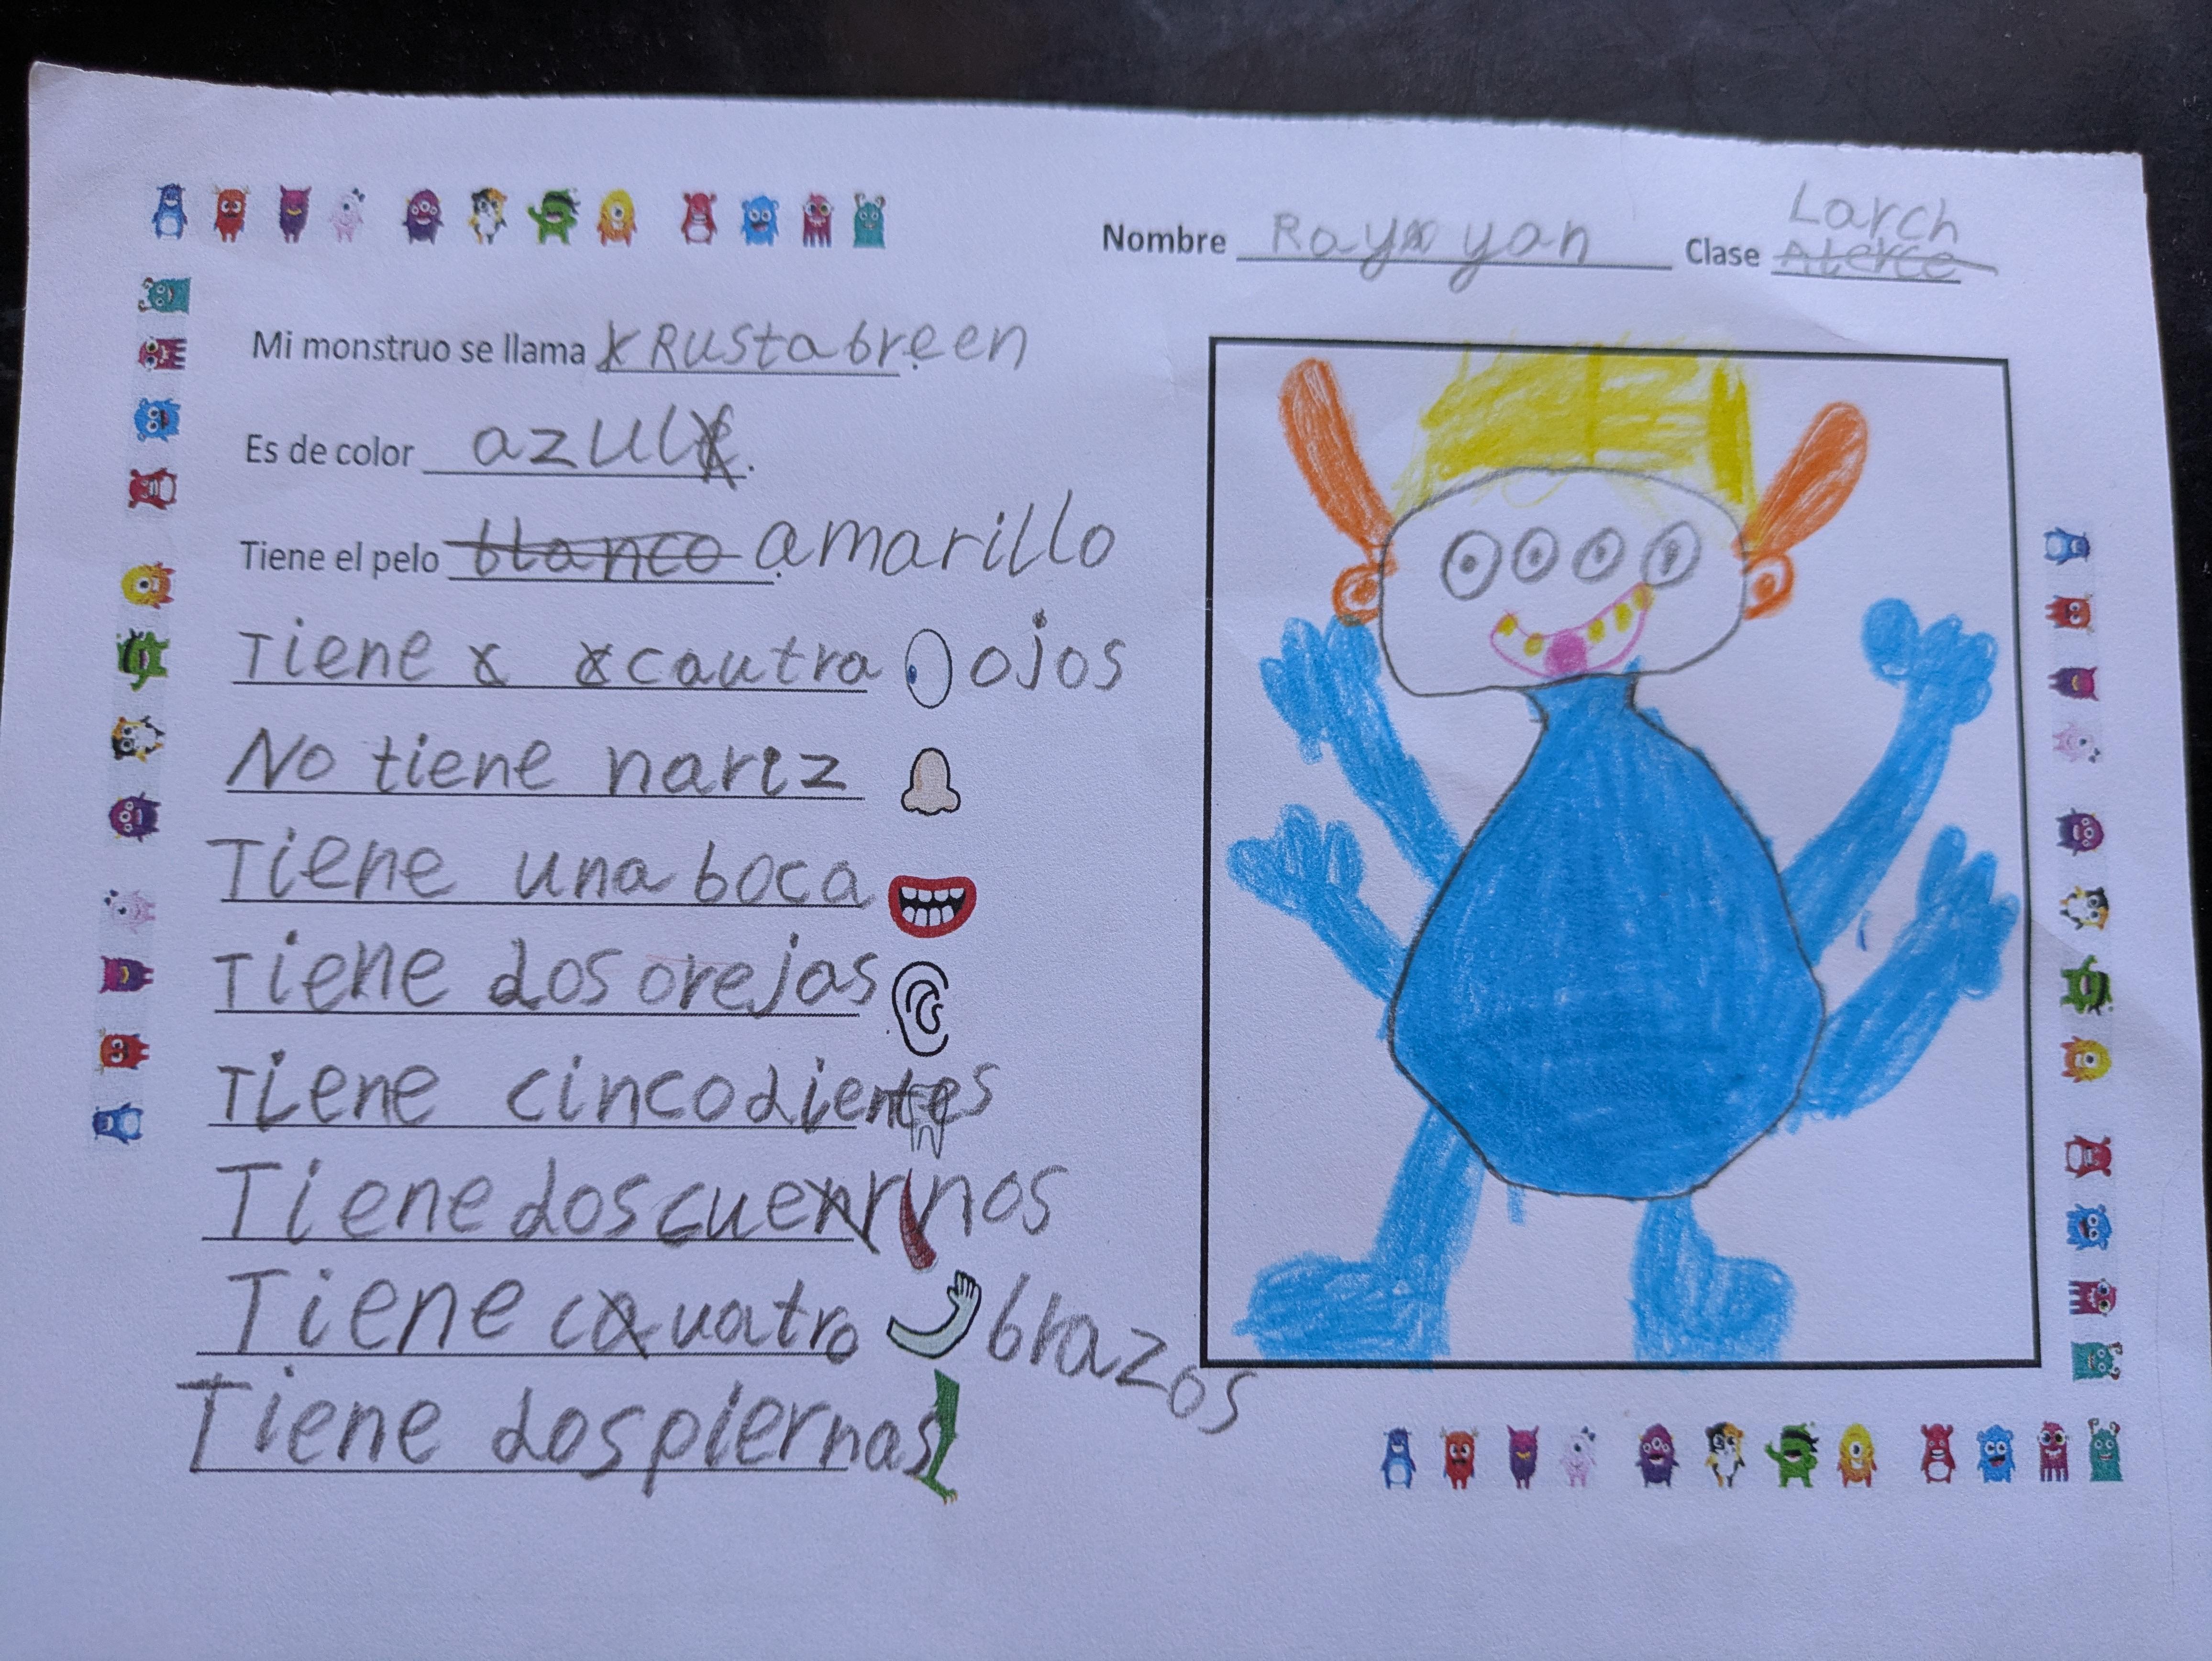 Nombre Rayyan Clase Larch
Alerce
Mi monstruo se llama KRustabreen.
Es de color azul.
Tiene el pelo blanco. amarillo
Tiene cautra ojos
No tiene nariz
Tiene una boca
Tiene dos orejas
Tiene cinco dientes
Tiene dos cuernos
Tiene cuatro brazos
Tiene dos piernas